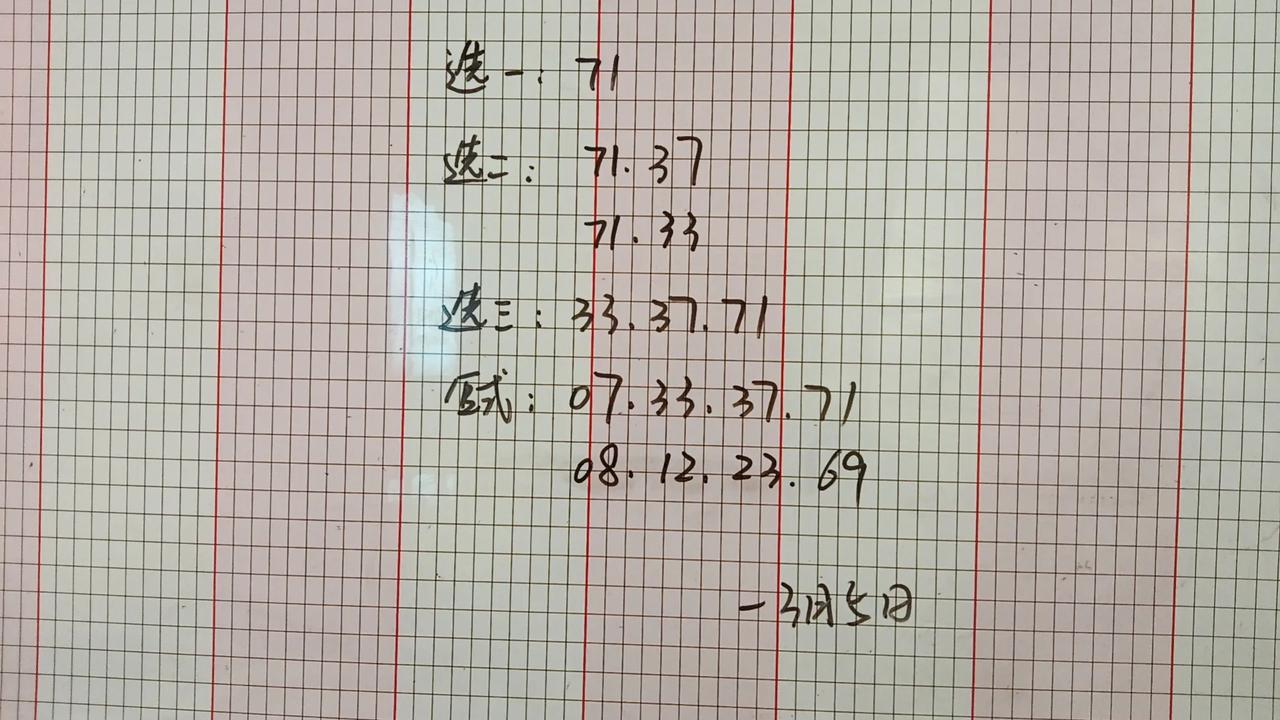 选一: 71
选二: 71.37
71.33
选三: 33.37.71
复式: 07.33.37.71
08.12.23.69
—3月5日